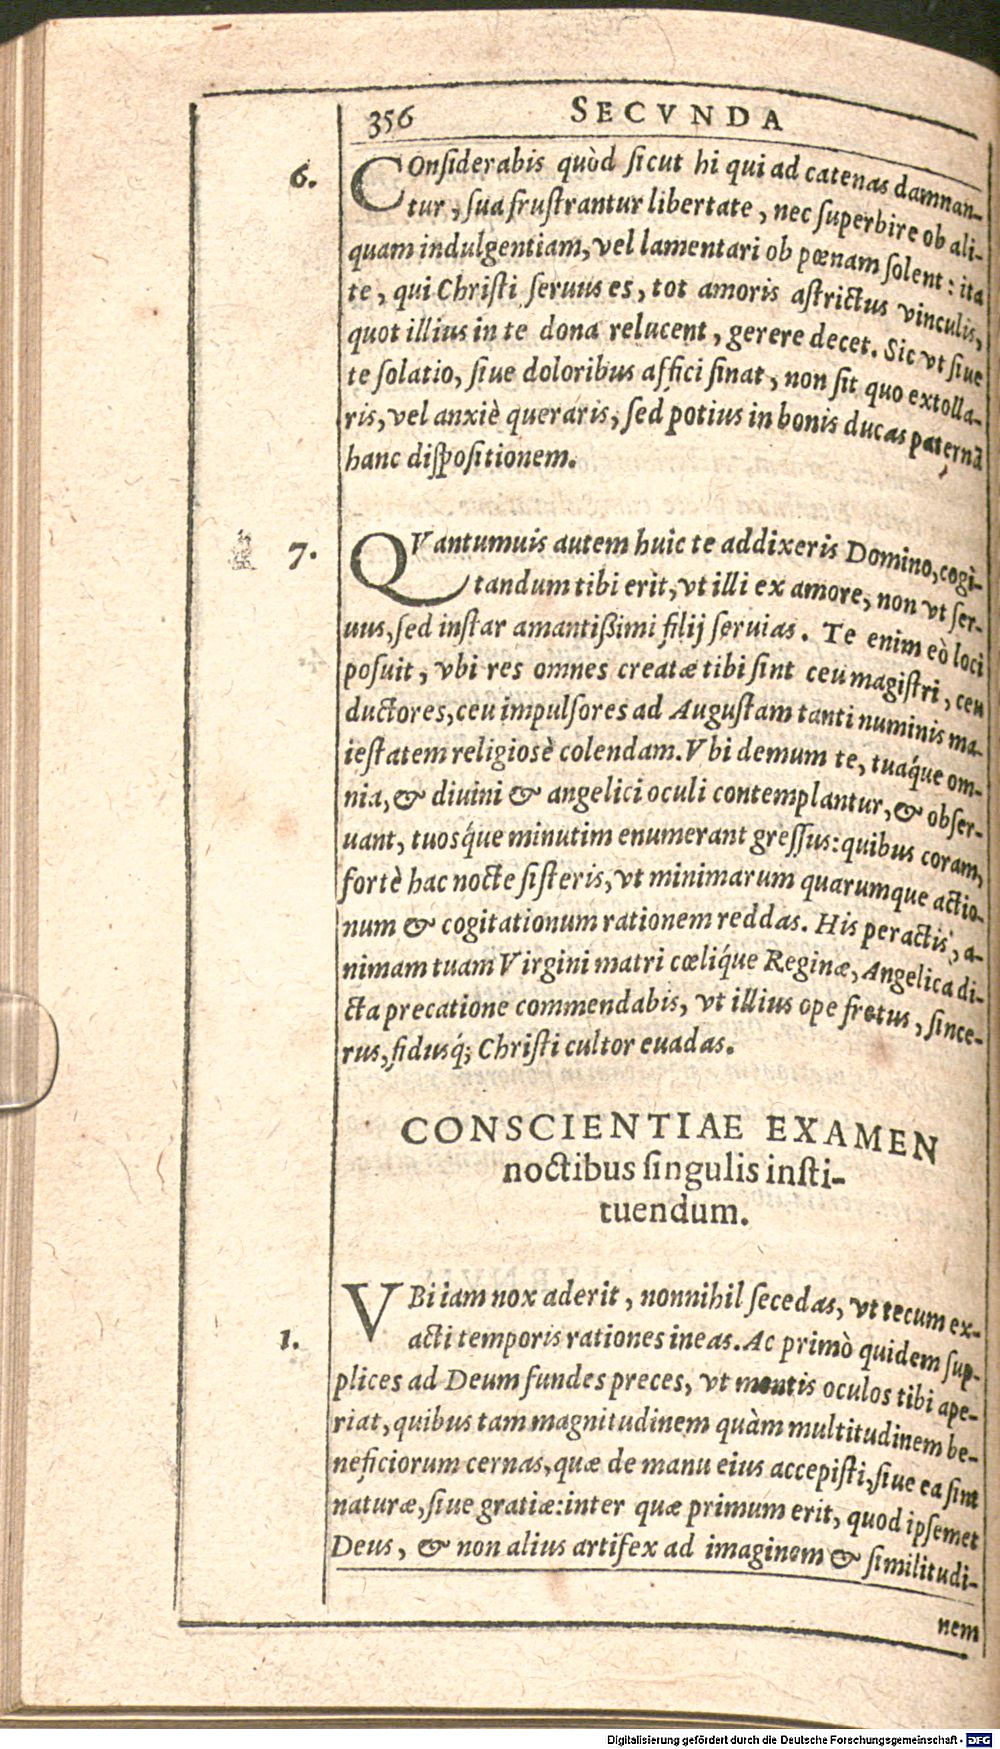 356 SECVNDA
6. COnsiderabis quòd sicut hi qui ad catenas damnan-
tur, sua frustrantur libertate, nec superbire ob ali-
quam indulgentiam, vel lamentari ob pœnam solent: ita
te, qui Christi seruus es, tot amoris astrictus vinculis,
quot illius in te dona relucent, gerere decet. Sic vt siue
te solatio, siue doloribus affici sinat, non sit quo extolla-
ris, vel anxiè queraris, sed potius in bonis ducas paternā
hanc dispositionem.
7. QVantumuis autem huic te addixeris Domino, cogi-
tandum tibi erit, vt illi ex amore, non vt ser-
uus, sed instar amantißimi filij seruias. Te enim eò loci
posuit, vbi res omnes creatæ tibi sint ceu magistri, ceu
ductores, ceu impulsores ad Augustam tanti numinis ma-
iestatem religiosè colendam. Vbi demum te, tuáque om-
nia, & diuini & angelici oculi contemplantur, & obser-
uant, tuosq́ue minutim enumerant gressus: quibus coram,
fortè hac nocte sisteris, vt minimarum quarumque actio-
num & cogitationum rationem reddas. His peractis, a-
nimam tuam Virgini matri cœliq́ue Reginæ, Angelica di-
cta precatione commendabis, vt illius ope fretus, since-
rus, fidusq́; Christi cultor euadas.
CONSCIENTIAE EXAMEN
noctibus singulis insti-
tuendum.
1. VBi iam nox aderit, nonnihil secedas, vt tecum ex-
acti temporis rationes ineas. Ac primò quidem sup-
plices ad Deum fundes preces, vt mentis oculos tibi ape-
riat, quibus tam magnitudinem quàm multitudinem be-
neficiorum cernas, quæ de manu eius accepisti, siue ea sint
naturæ, siue gratiæ: inter quæ primum erit, quod ipsemet
Deus, & non alius artifex ad imaginem & similitudi-
nem
Digitalisierung gefördert durch die Deutsche Forschungsgemeinschaft - DFG